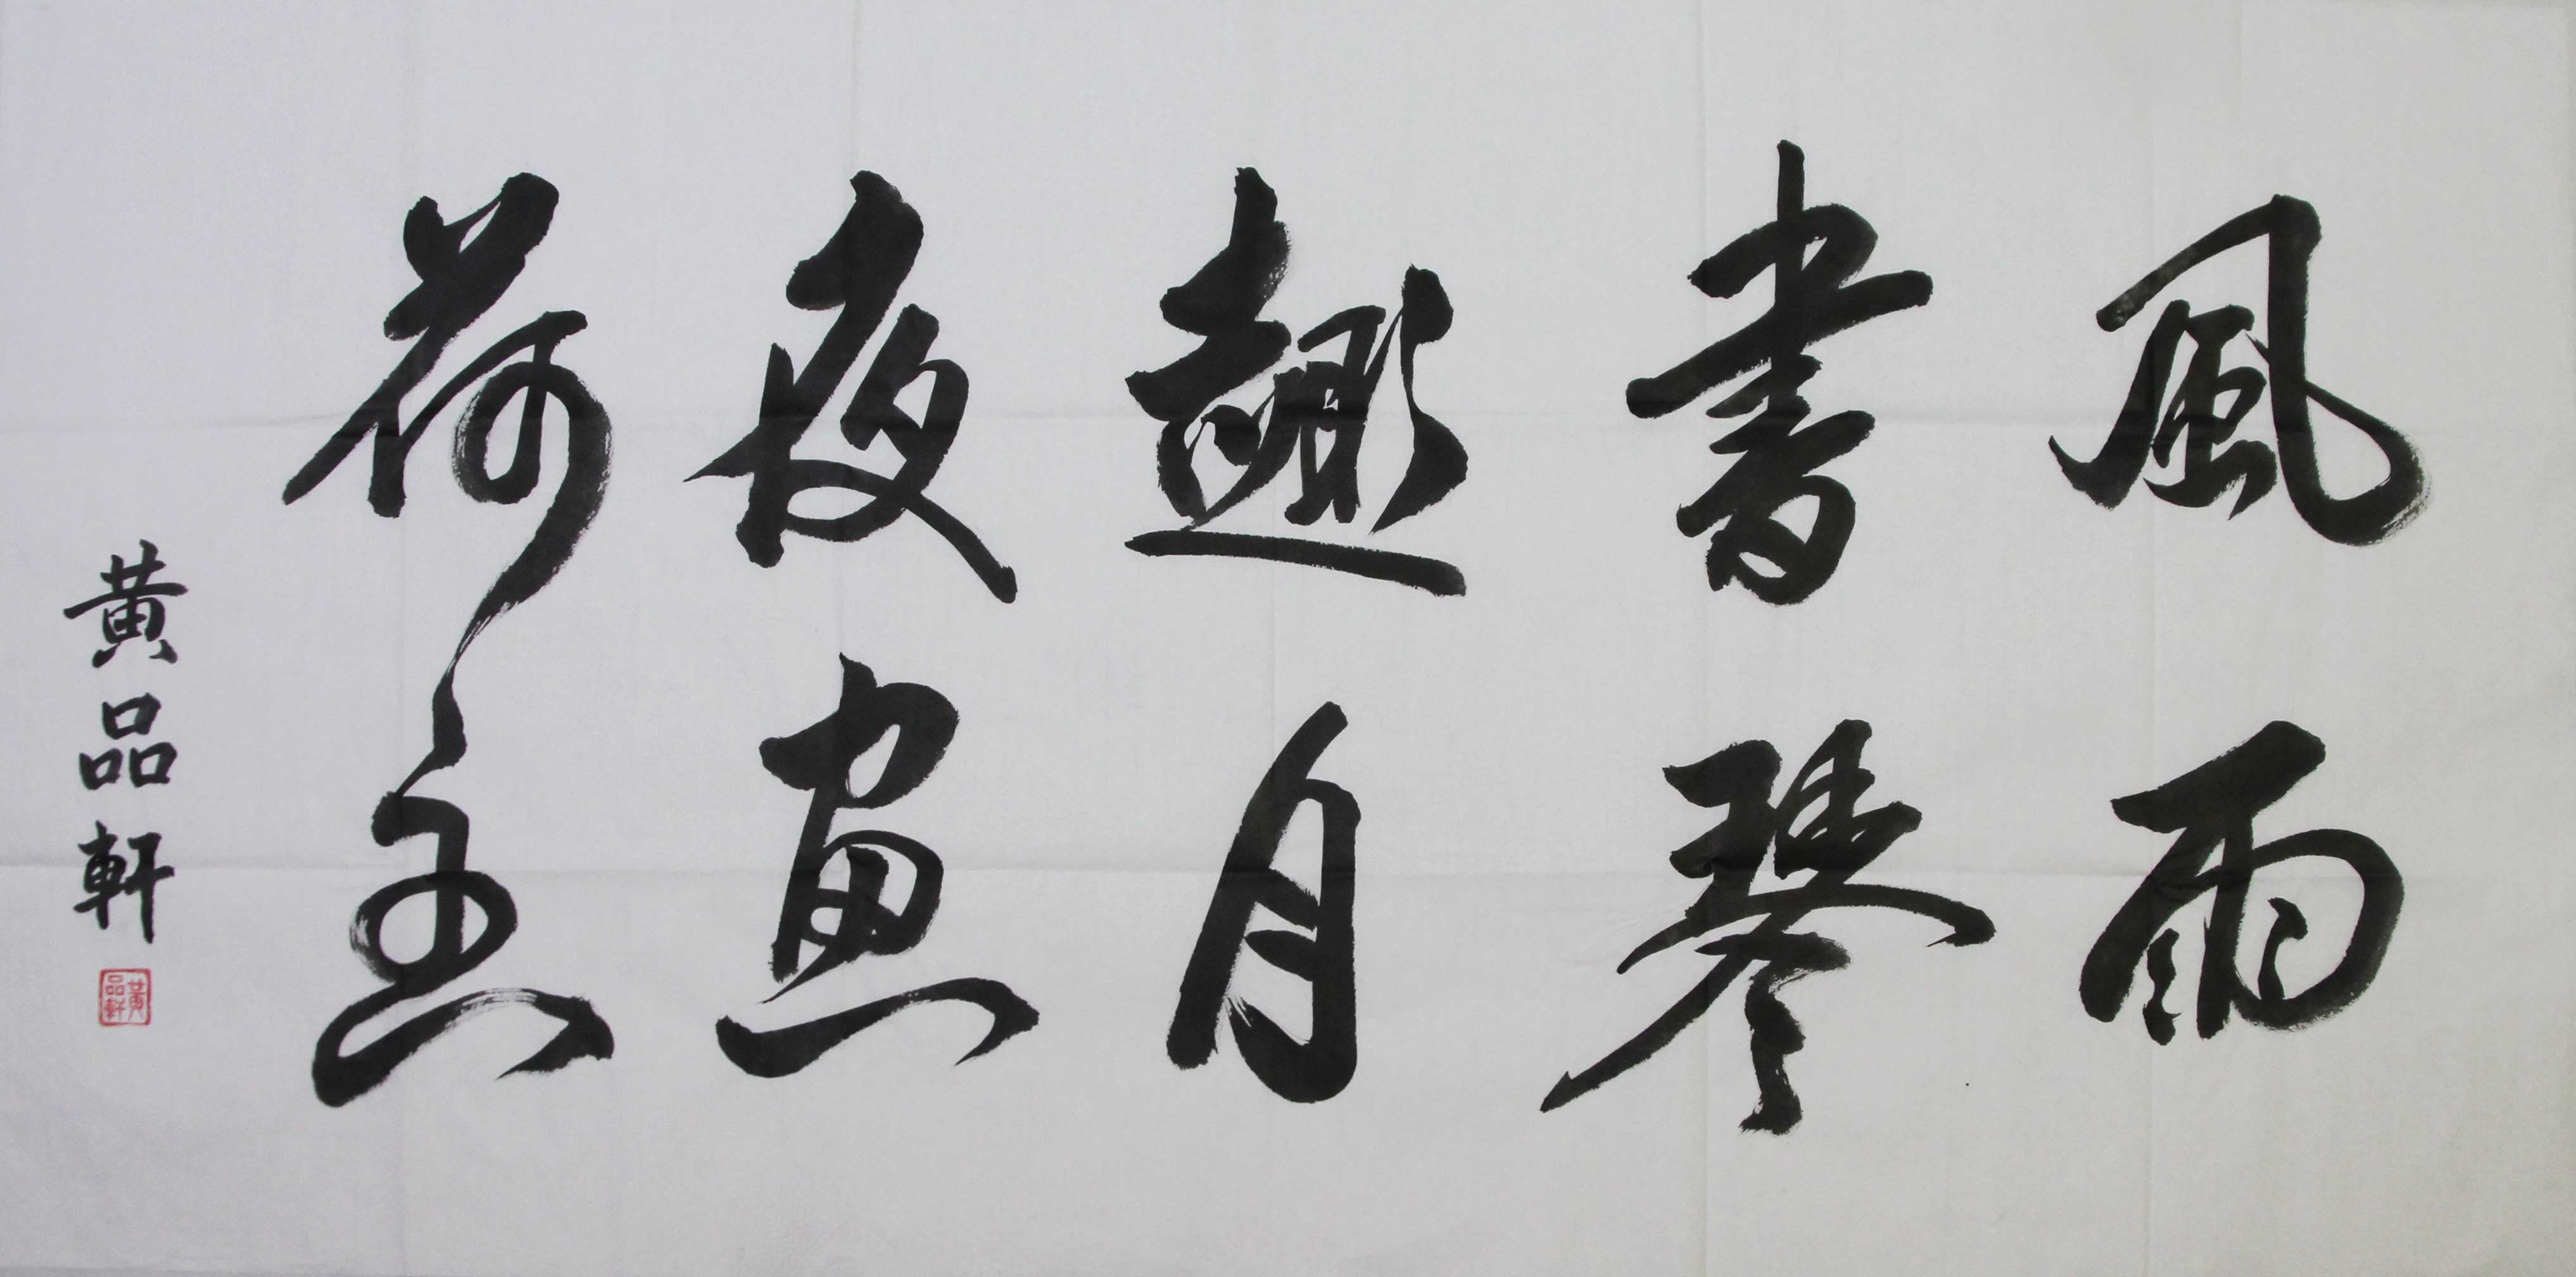 風雨
書琴
趣月
夜畫
荷
黃品軒
黃品軒